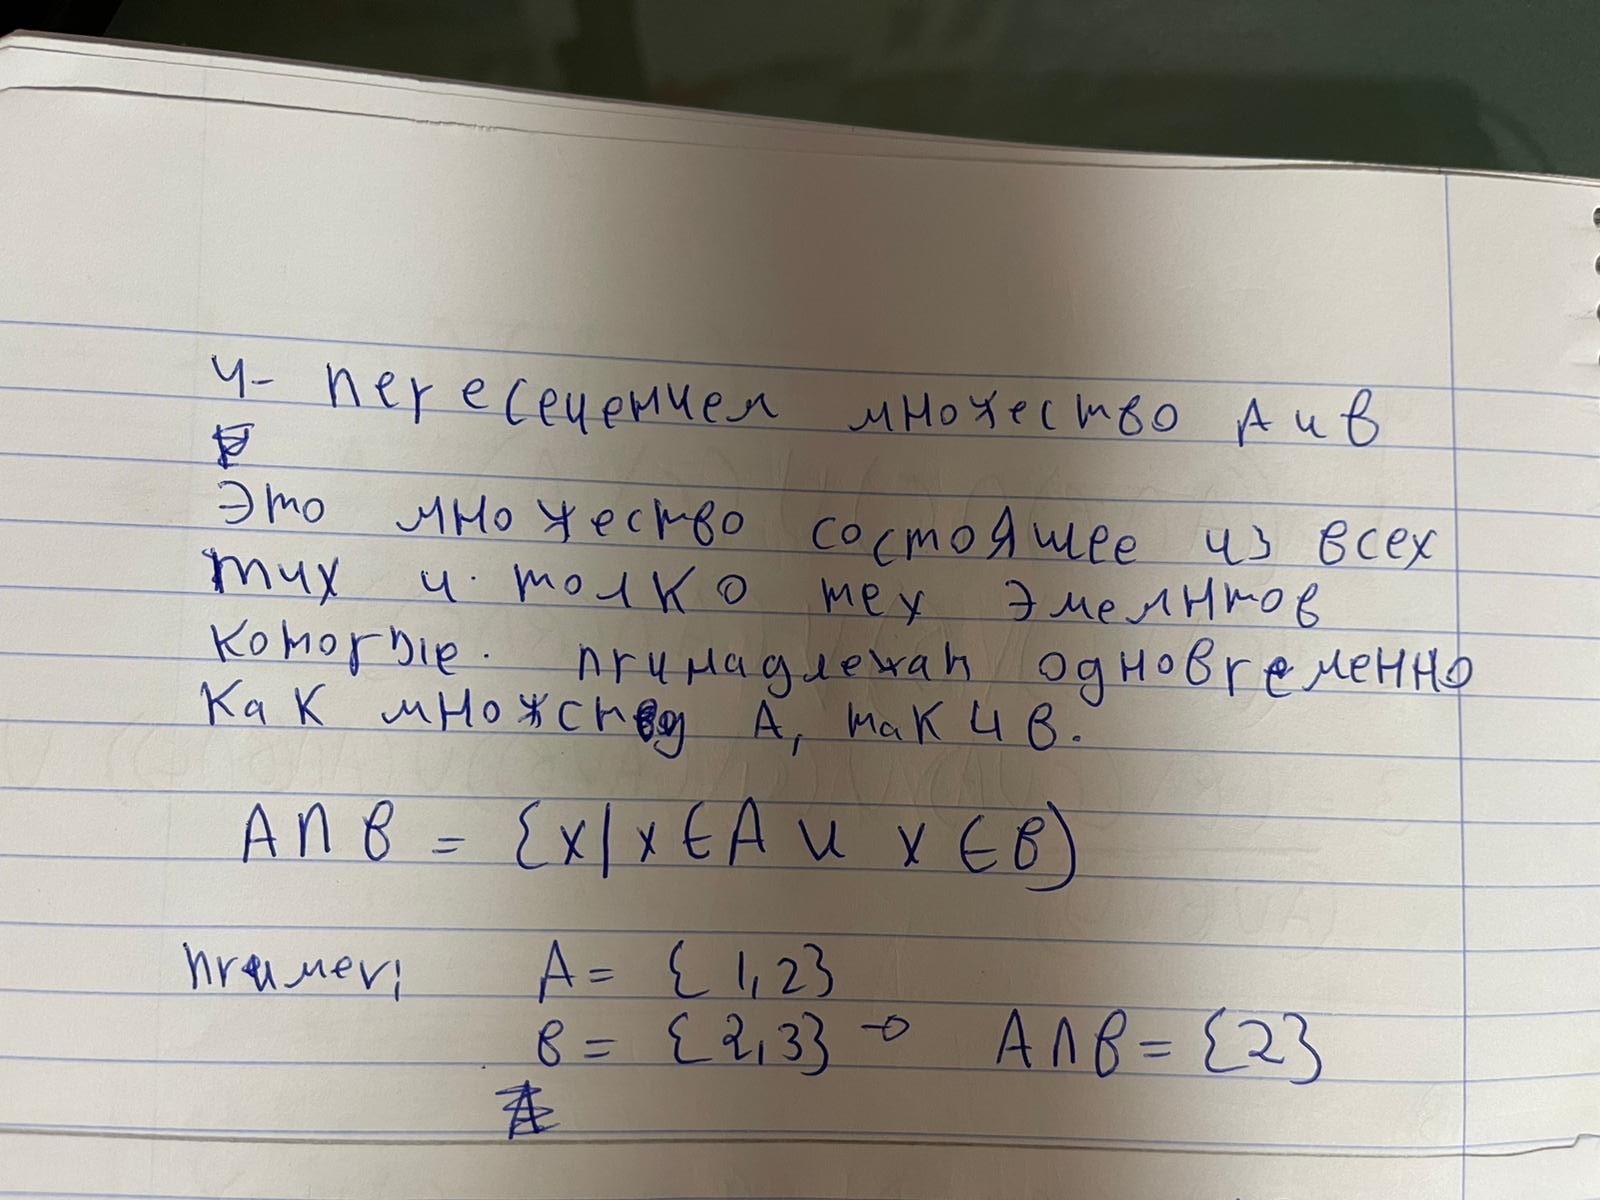 4- пересечением множество А и В
Это множество состоящее из всех
тих и толко тех эмелнтов
которые. принадлежат одновременно
как множству А, так и В.
A ∩ B = {x | x ∈ A и x ∈ B)
пример: A = {1,2}
B = {2,3} → A ∩ B = {2}